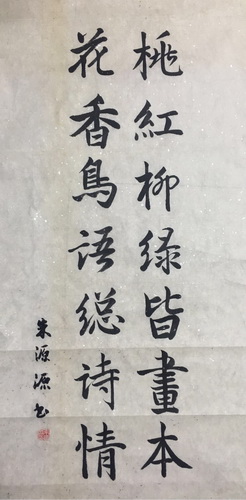 桃紅柳緑皆畫本
花香鳥語總詩情
朱源源书